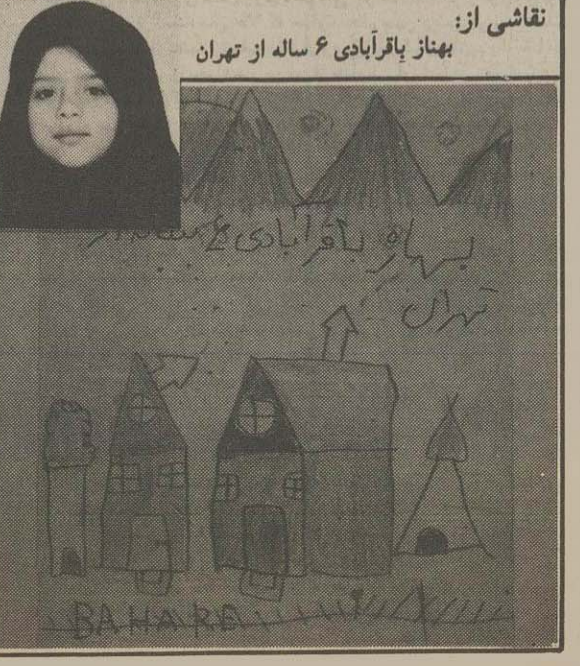 نقاشی از:
بهناز باقرآبادی ۶ ساله از تهران
باقرآبادی ۶ ساله از
تهران
BAHARE